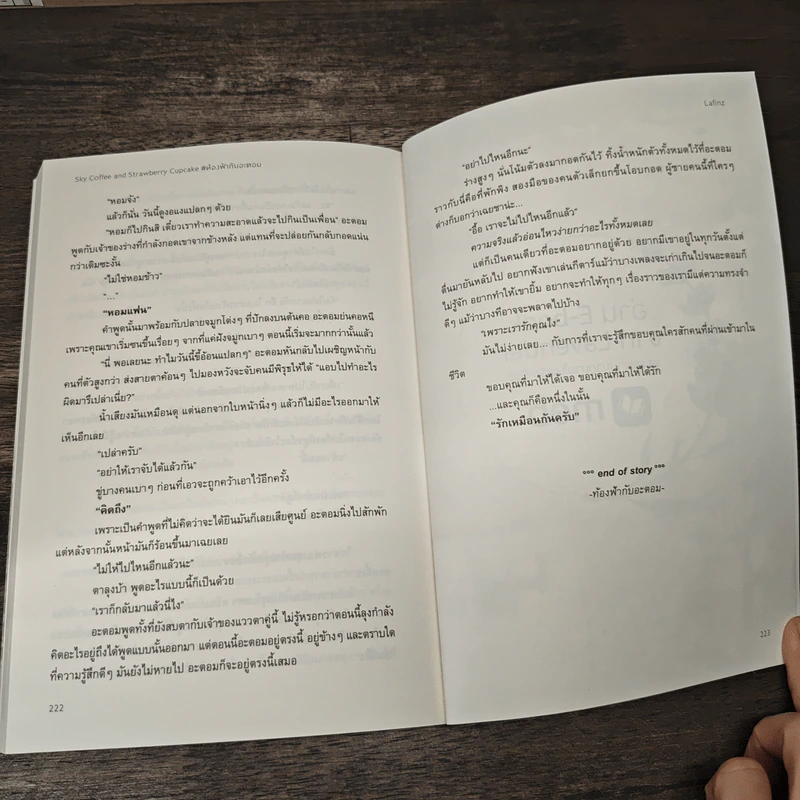 Sky Coffee and Strawberry Cupcake #ท้องฟ้ากับอะตอม
"หอมจัง"
แล้วก็นั่น วันนี้ดูงอแงแปลกๆ ด้วย
"หอมก็ไปกินสิ เดี๋ยวเราทำความสะอาดแล้วจะไปกินเป็นเพื่อน" อะตอม
พูดกับเจ้าของร่างที่กำลังกอดเขาจากข้างหลัง แต่แทนที่จะปล่อยกันกลับกอดแน่น
กว่าเดิมซะงั้น
"ไม่ใช่หอมข้าว"
"..."
"หอมแฟน"
คำพูดนั้นมาพร้อมกับปลายจมูกโด่งๆ ที่ปักลงบนต้นคอ อะตอมย่นคอหนี
เพราะคุณเขาเริ่มซนขึ้นเรื่อยๆ จากที่แค่ฝังจมูกเบาๆ ตอนนี้เริ่มจะมากกว่านั้นแล้ว
"นี่ พอเลยนะ ทำไมวันนี้ขี้อ้อนแปลกๆ" อะตอมหันกลับไปเผชิญหน้ากับ
คนที่ตัวสูงกว่า ส่งสายตาค้อนๆ ไปมองหวังจะจับคนมีพิรุธให้ได้ "แอบไปทำอะไร
ผิดมารึเปล่าเนี่ย?"
น้ำเสียงมันเหมือนดุ แต่นอกจากใบหน้านิ่งๆ แล้วก็ไม่มีอะไรออกมาให้
เห็นอีกเลย
"เปล่าครับ"
"อย่าให้เราจับได้แล้วกัน"
ขู่บางคนเบาๆ ก่อนที่เอวจะถูกคว้าเอาไว้อีกครั้ง
"คิดถึง"
เพราะเป็นคำพูดที่ไม่คิดว่าจะได้ยินมันก็เลยเสียศูนย์ อะตอมนิ่งไปสักพัก
แต่หลังจากนั้นหน้ามันก็ร้อนขึ้นมาเฉยเลย
"ไม่ให้ไปไหนอีกแล้วนะ"
ตาลุงบ้า พูดอะไรแบบนี้ก็เป็นด้วย
"เราก็กลับมาแล้วนี่ไง"
อะตอมพูดทั้งที่ยังสบตากับเจ้าของแววตาคู่นี้ ไม่รู้หรอกว่าตอนนี้ลุงกำลัง
คิดอะไรอยู่ถึงได้พูดแบบนั้นออกมา แต่ตอนนี้อะตอมอยู่ตรงนี้ อยู่ข้างๆ และตราบใด
ที่ความรู้สึกดีๆ มันยังไม่หายไป อะตอมก็จะอยู่ตรงนี้เสมอ
222
Lafinz
"อย่าไปไหนอีกนะ"
ร่างสูงๆ นั่นโน้มตัวลงมากอดกันไว้ ทิ้งน้ำหนักตัวทั้งหมดไว้ที่อะตอม
ราวกับนี่คือที่พักพิง สองมือของคนตัวเล็กยกขึ้นโอบกอด ผู้ชายคนนี้ที่ใครๆ
ต่างก็บอกว่าเฉยชาน่ะ...
"อื้อ เราจะไม่ไปไหนอีกแล้ว"
ความจริงแล้วอ่อนไหวง่ายกว่าอะไรทั้งหมดเลย
แต่ก็เป็นคนเดียวที่อะตอมอยากอยู่ด้วย อยากมีเขาอยู่ในทุกวันตั้งแต่
ตื่นมายันหลับไป อยากฟังเขาเล่นกีตาร์แม้ว่าบางเพลงจะเก่าเกินไปจนอะตอมก็
ไม่รู้จัก อยากทำให้เขายิ้ม อยากจะทำให้ทุกๆ เรื่องราวของเรามีแต่ความทรงจำ
ดีๆ แม้ว่าบางทีอาจจะพลาดไปบ้าง
"เพราะเรารักคุณไง"
มันไม่ง่ายเลย... กับการที่เราจะรู้สึกขอบคุณใครสักคนที่ผ่านเข้ามาใน
ชีวิต
ขอบคุณที่มาให้ได้เจอ ขอบคุณที่มาให้ได้รัก
...และคุณก็คือหนึ่งในนั้น
"รักเหมือนกันครับ"
°°° end of story °°°
-ท้องฟ้ากับอะตอม-
223